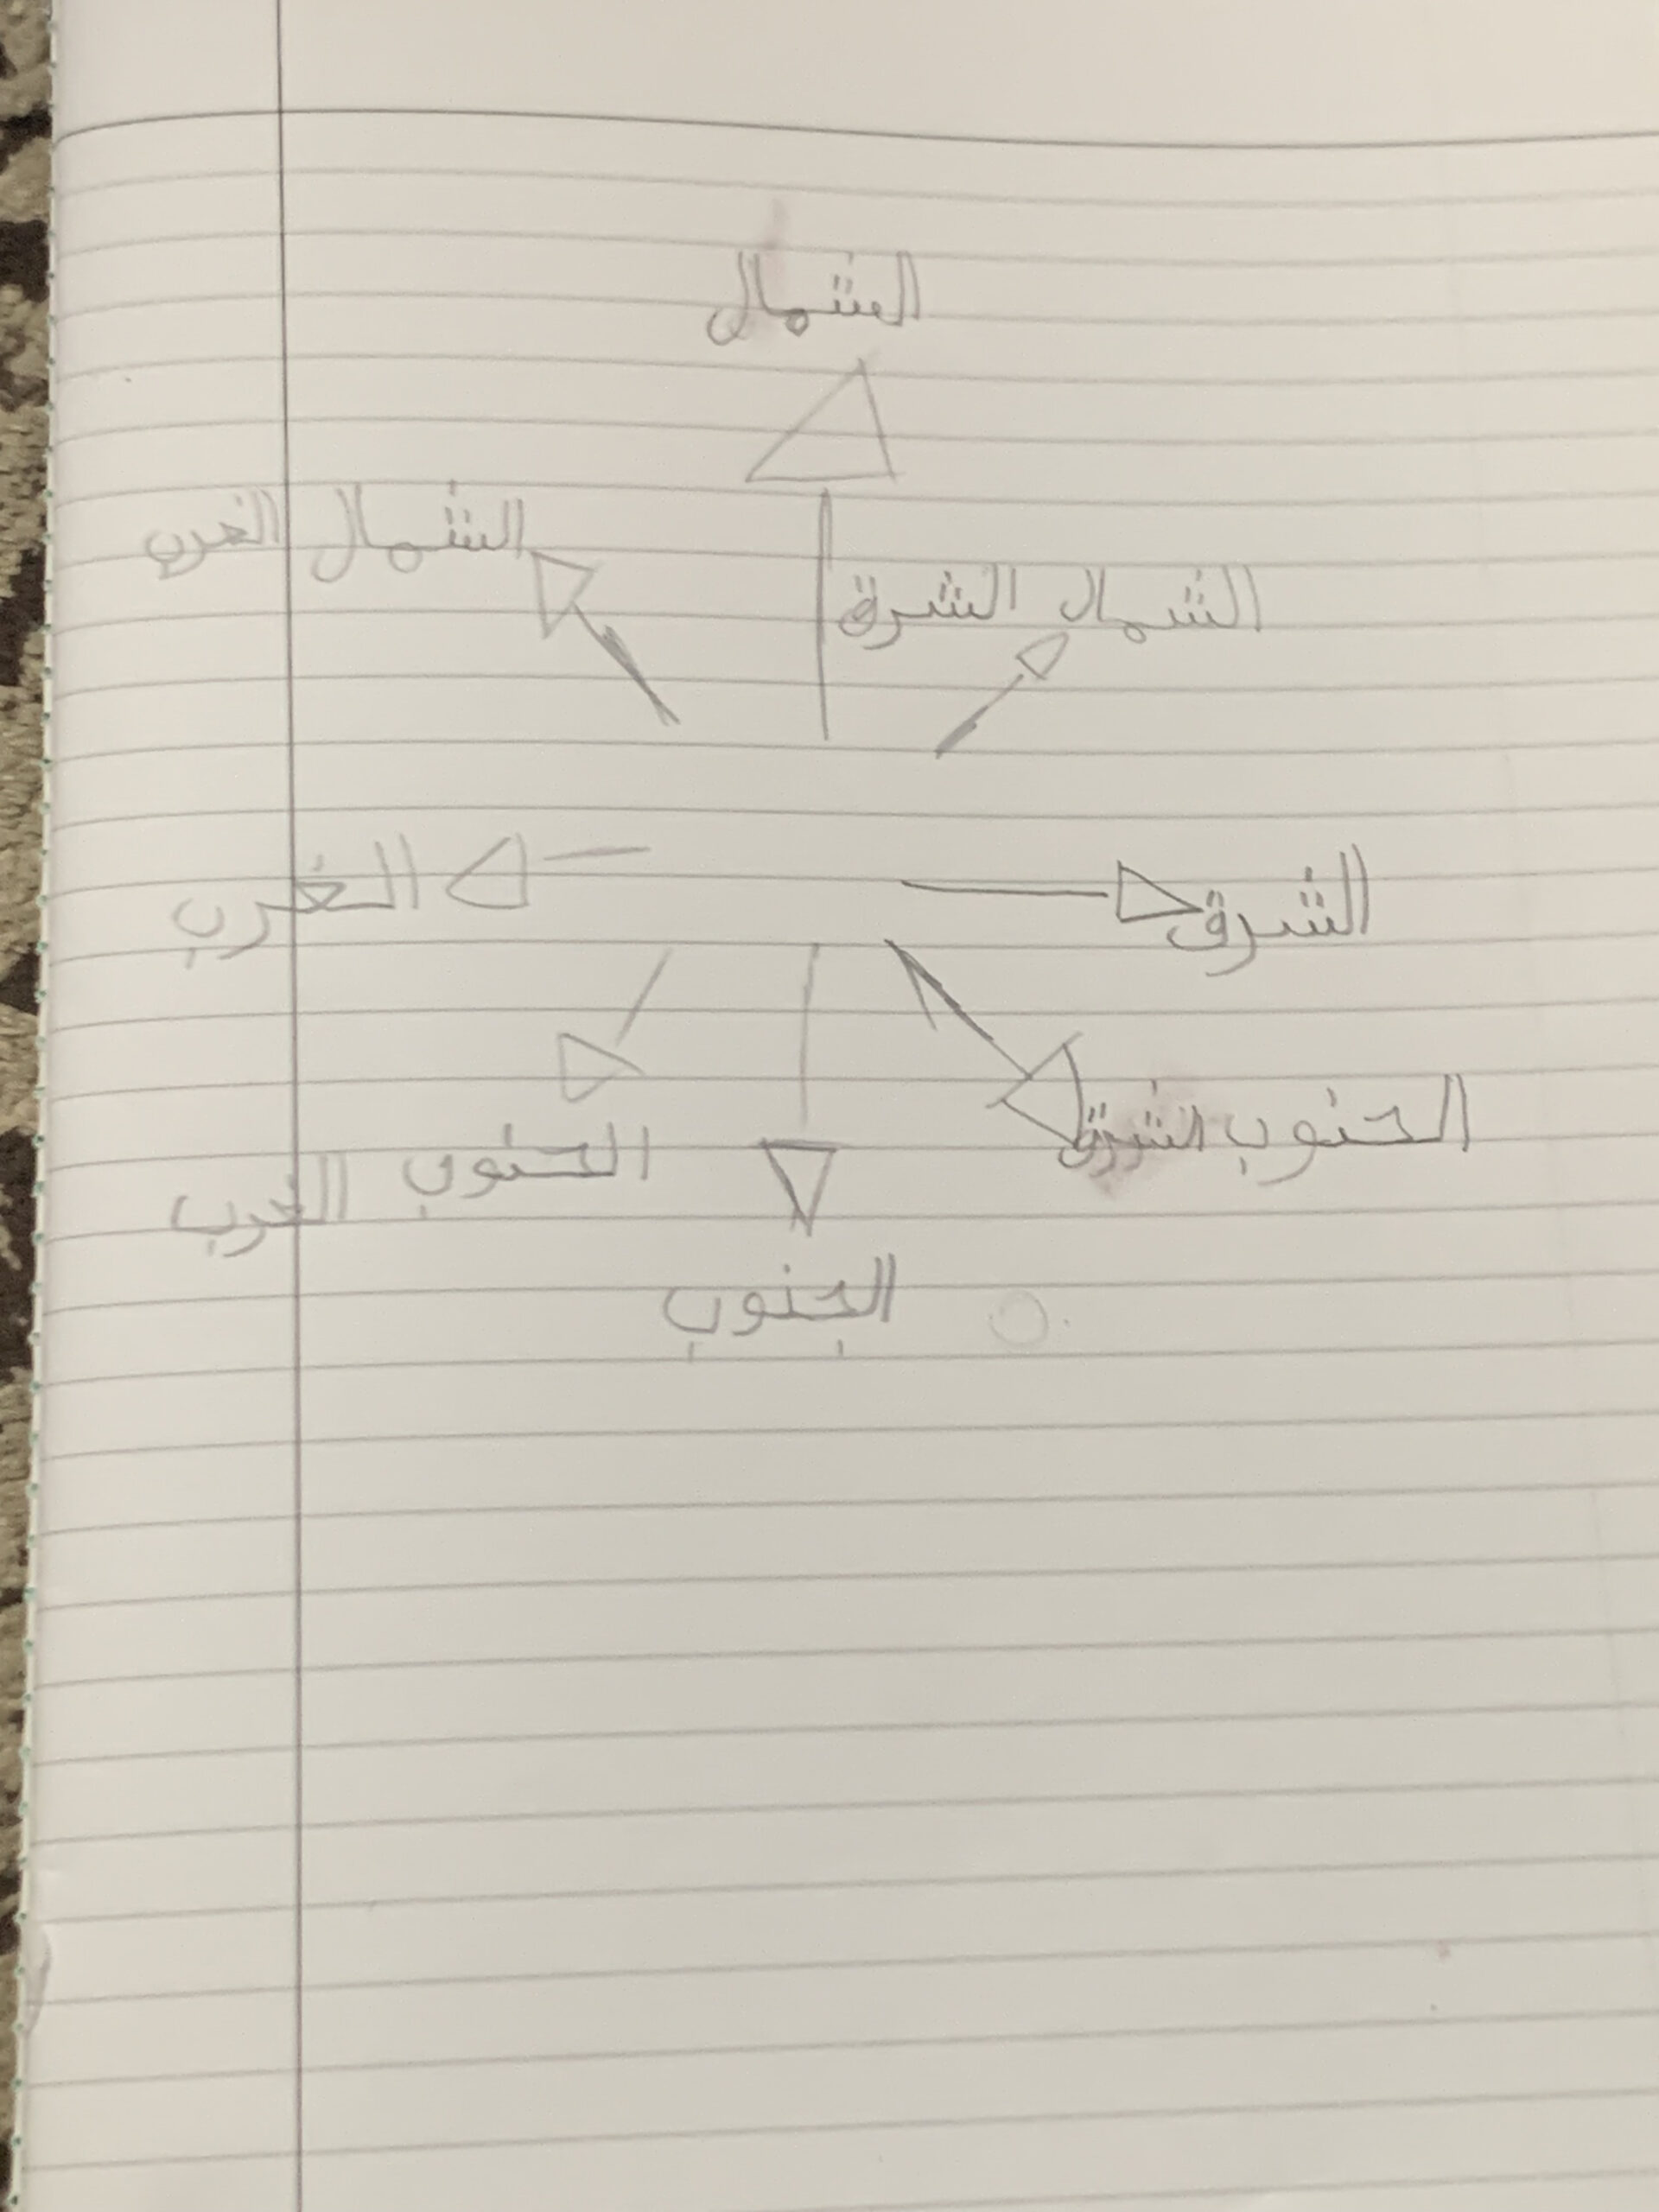 الشمال
الشمال الغرب
الشمال الشرق
الغرب
الشرق
الجنوب الشرق
الجنوب الغرب
الجنوب